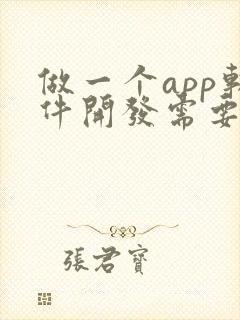 做一个app軟
件開發需要
張君寶